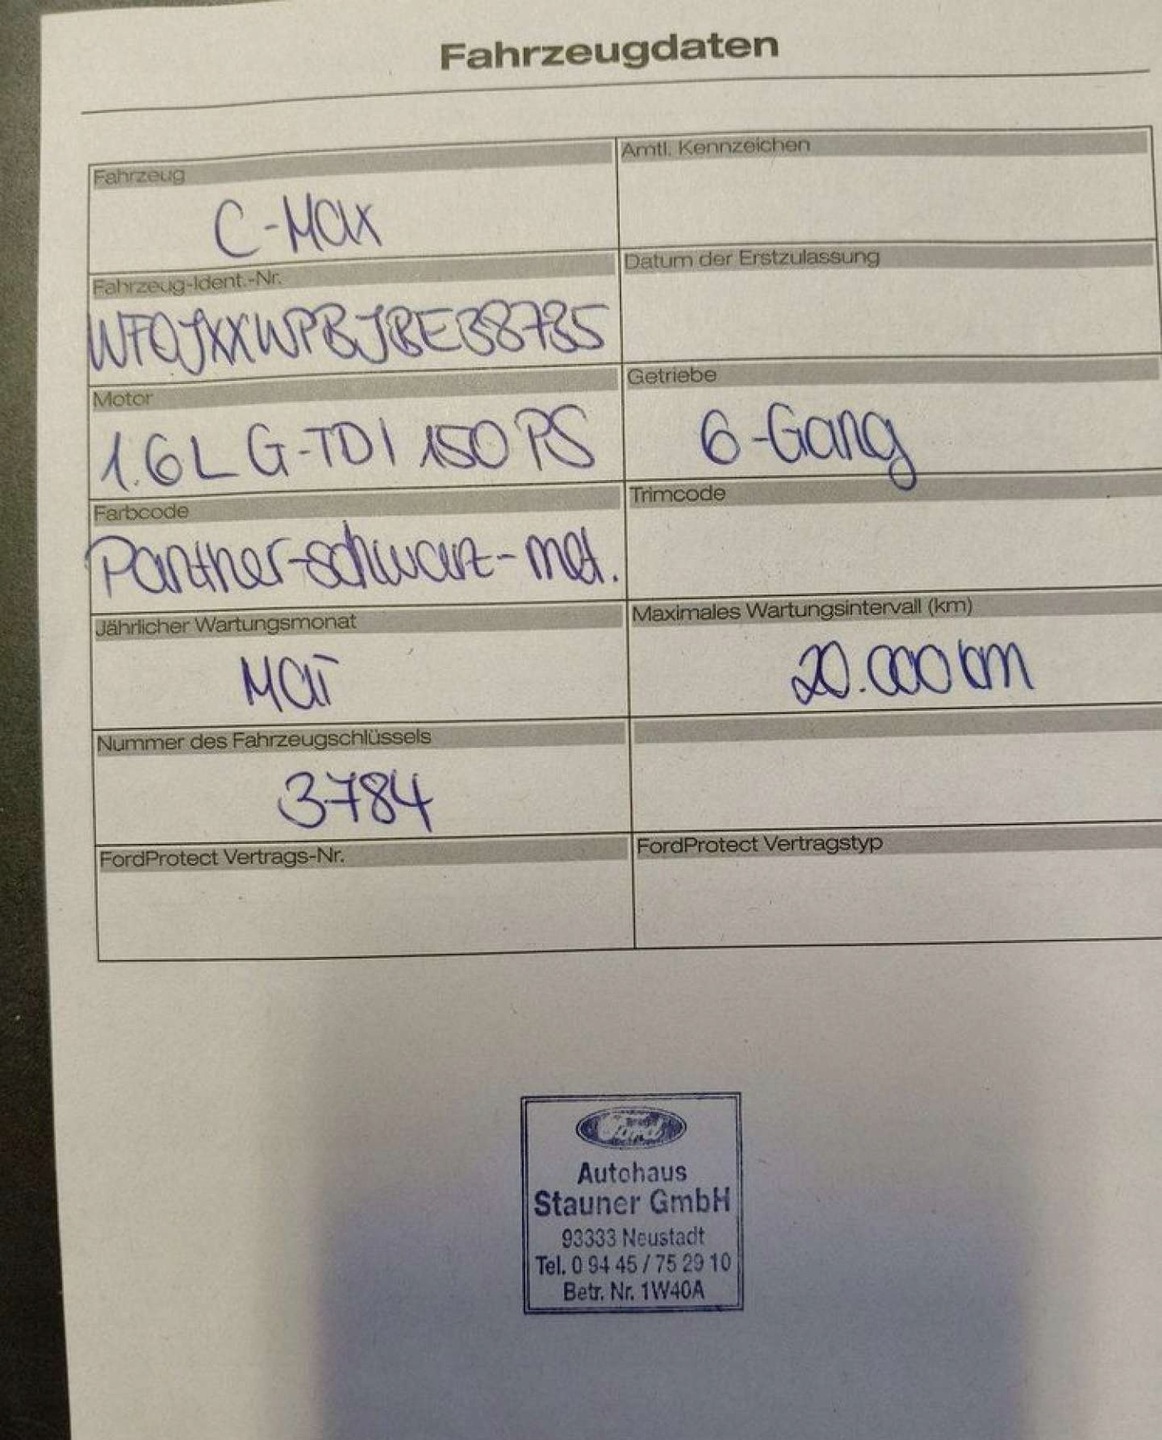 Fahrzeugdaten
Fahrzeug
Amtl. Kennzeichen
C-Max
Fahrzeug-Ident.-Nr.
Datum der Erstzulassung
WF0JXXWPBJBE38735
Motor
Getriebe
1.6L G-TDI 150 PS
6-Gang
Farbcode
Trimcode
Panther-schwarz-met.
Jährlicher Wartungsmonat
Maximales Wartungsintervall (km)
Mai
20.000 km
Nummer des Fahrzeugschlüssels
3784
FordProtect Vertrags-Nr.
FordProtect Vertragstyp
Ford
Autohaus
Stauner GmbH
93333 Neustadt
Tel. 0 94 45 / 75 29 10
Betr. Nr. 1W40A